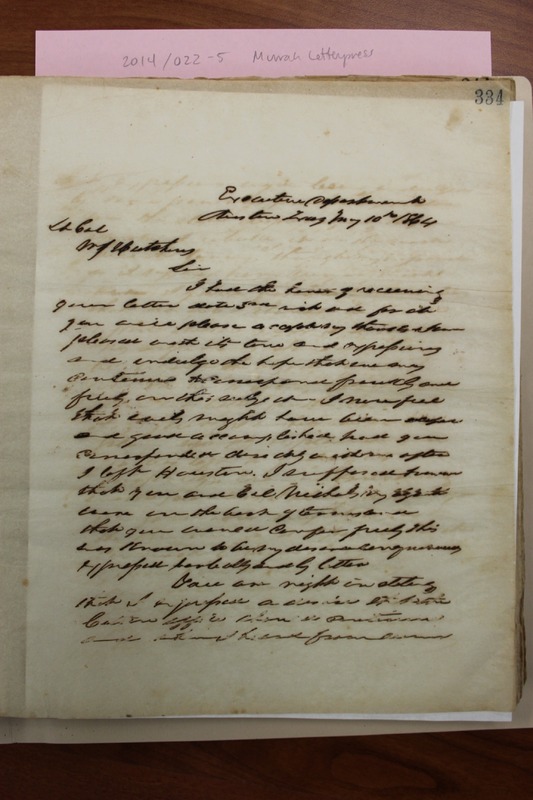 2014/022-5 Murrah Letterpress
334
Executive Department
Austin Texas May 10th 1864
Lt Col
W J Hutchins
Sir
I had the honor of receiving
your letter date 3rd inst and for it
you will please accept my thanks I am
pleased with its tone and
and indulge the hope that we may
continue to correspond frankly and
freely on this subject I now feel
that much might have been
and good accomplished had you
corresponded directly with me after
I left Houston. I supposed
that you and Col Nichols my agent
were on the best of terms and
that you would confer freely this
was known to be my desire
expressed verbally and by letter
You are right in stating
that I expressed a desire to have
Cotton
and from